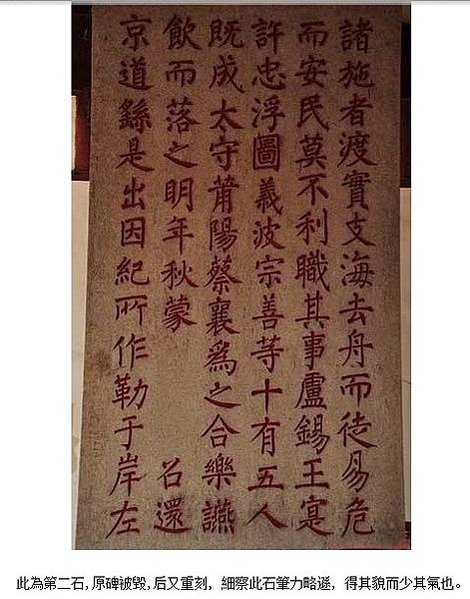 諸施者渡實支海去舟而徒易危
而安民莫不利職其事盧錫王寔
許忠浮圖義波宗善等十有五人
既成太守莆陽蔡襄為之合樂讌
飲而落之明年秋蒙 召還
京道繇是出因紀所作勒于岸左
此為第二石，原碑被毀，后又重刻，細察此石筆力略遜，得其貌而少其氣也。